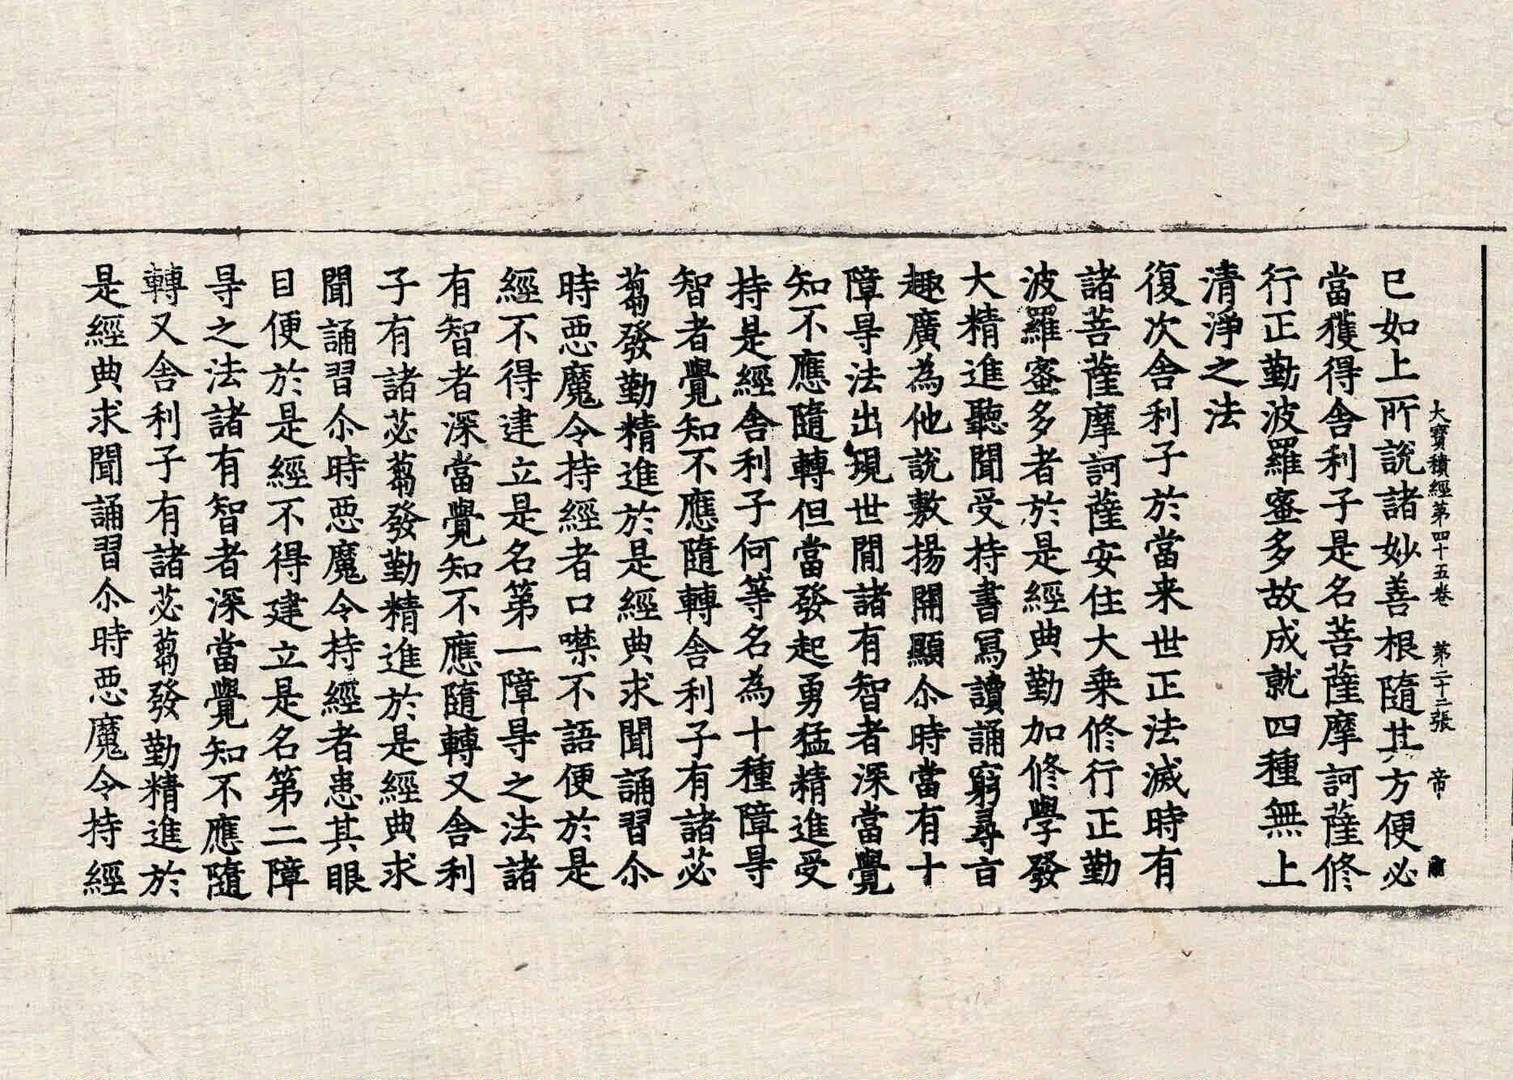 大寶積經第四十五卷 第二十三張 帝
已如上所說諸妙善根隨其方便必
當獲得舍利子是名菩薩摩訶薩修
行正勤波羅蜜多故成就四種無上
清淨之法
復次舍利子於當来世正法滅時有
諸菩薩摩訶薩安住大乗修行正勤
波羅蜜多者於是經典勤加修學發
大精進聽聞受持書寫讀誦窮尋言
趣廣為他說敷揚開顯尒時當有十
障㝵法出現世間諸有智者深當覺
知不應隨轉但當發起勇猛精進受
持是經舍利子何等名為十種障㝵
智者覺知不應隨轉舍利子有諸苾
蒭發勤精進於是經典求聞誦習尒
時惡魔令持經者口噤不語便於是
經不得建立是名第一障㝵之法諸
有智者深當覺知不應隨轉又舍利
子有諸苾蒭發勤精進於是經典求
聞誦習尒時惡魔令持經者患其眼
目便於是經不得建立是名第二障
㝵之法諸有智者深當覺知不應隨
轉又舍利子有諸苾蒭發勤精進於
是經典求聞誦習尒時惡魔令持經